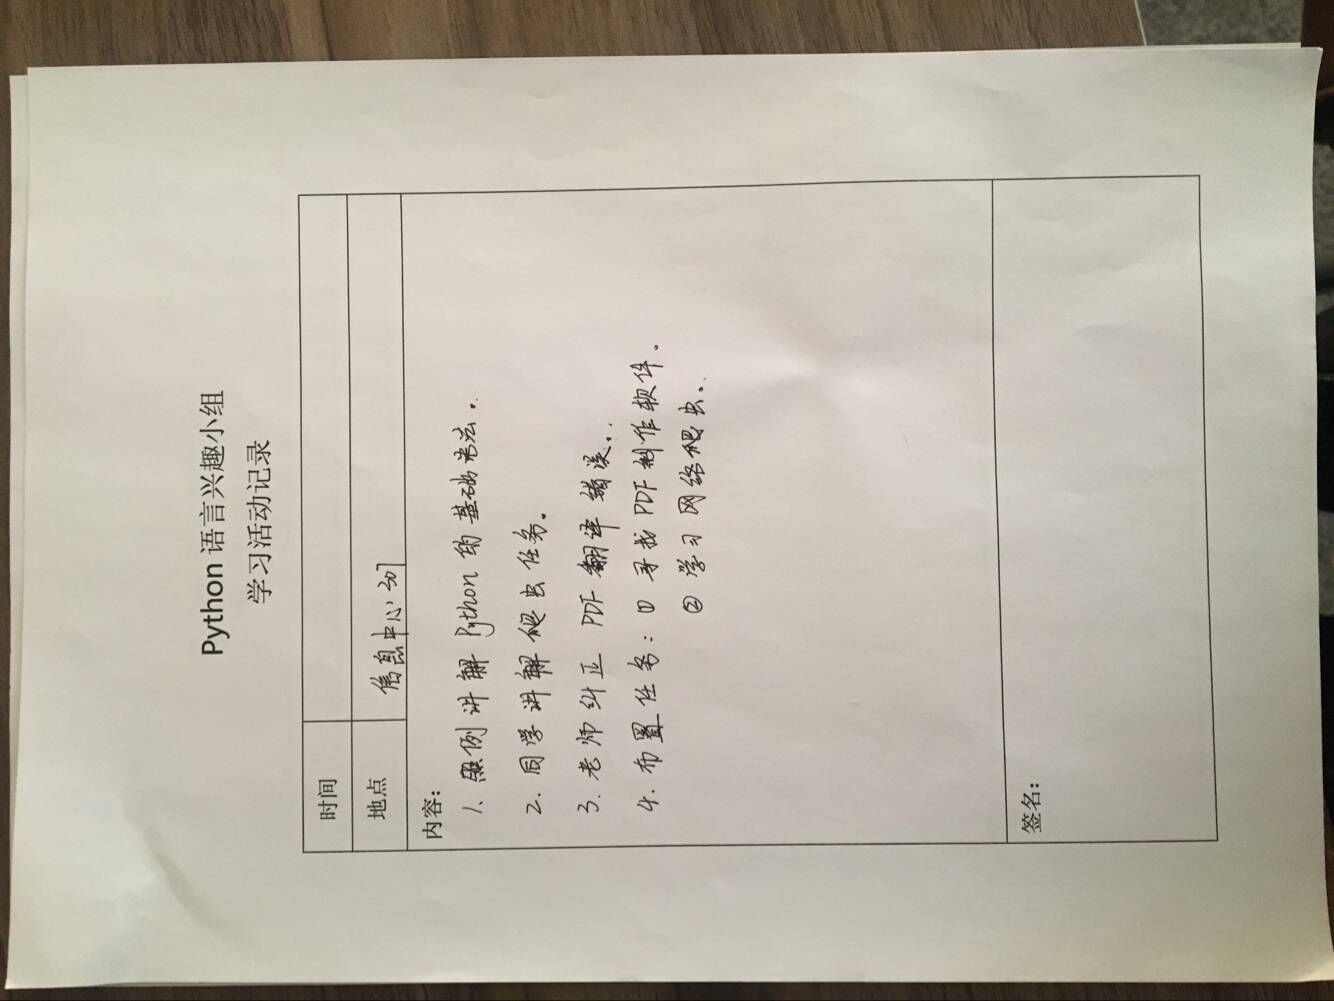 Python 语言兴趣小组
学习活动记录
时间
地点 信息中心307
内容：
1. 照例讲解Python的基础语法。
2. 同学讲解爬虫任务。
3. 老师纠正 PDF翻译错误。
4. 布置任务：① 寻找PDF制作软件。
② 学习网络爬虫。
签名：